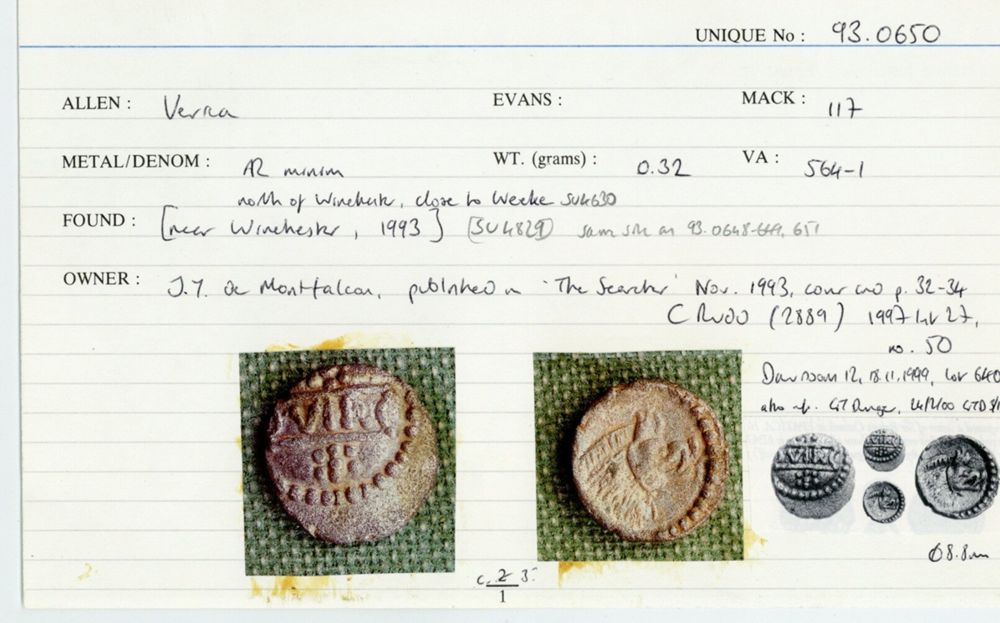 UNIQUE No : 93.0650
ALLEN : Verica EVANS : MACK : 117
METAL/DENOM : AR minim WT. (grams) : 0.32 VA : 564-1
north of Winchester, close to Weeke SU4630
FOUND : [near Winchester, 1993] [SU4829] same site as 93.0648-649, 651
OWNER : J.Y. de Montfalcon, published in 'The Searcher' Nov. 1993, cover and p. 32-34
C Rudd (2889) 1997 list 27,
no. 50
12, 18.11.1999, lot 640
also ref. 24/2/00
VIRI
c. 2 3:
1
Ø8.8mm